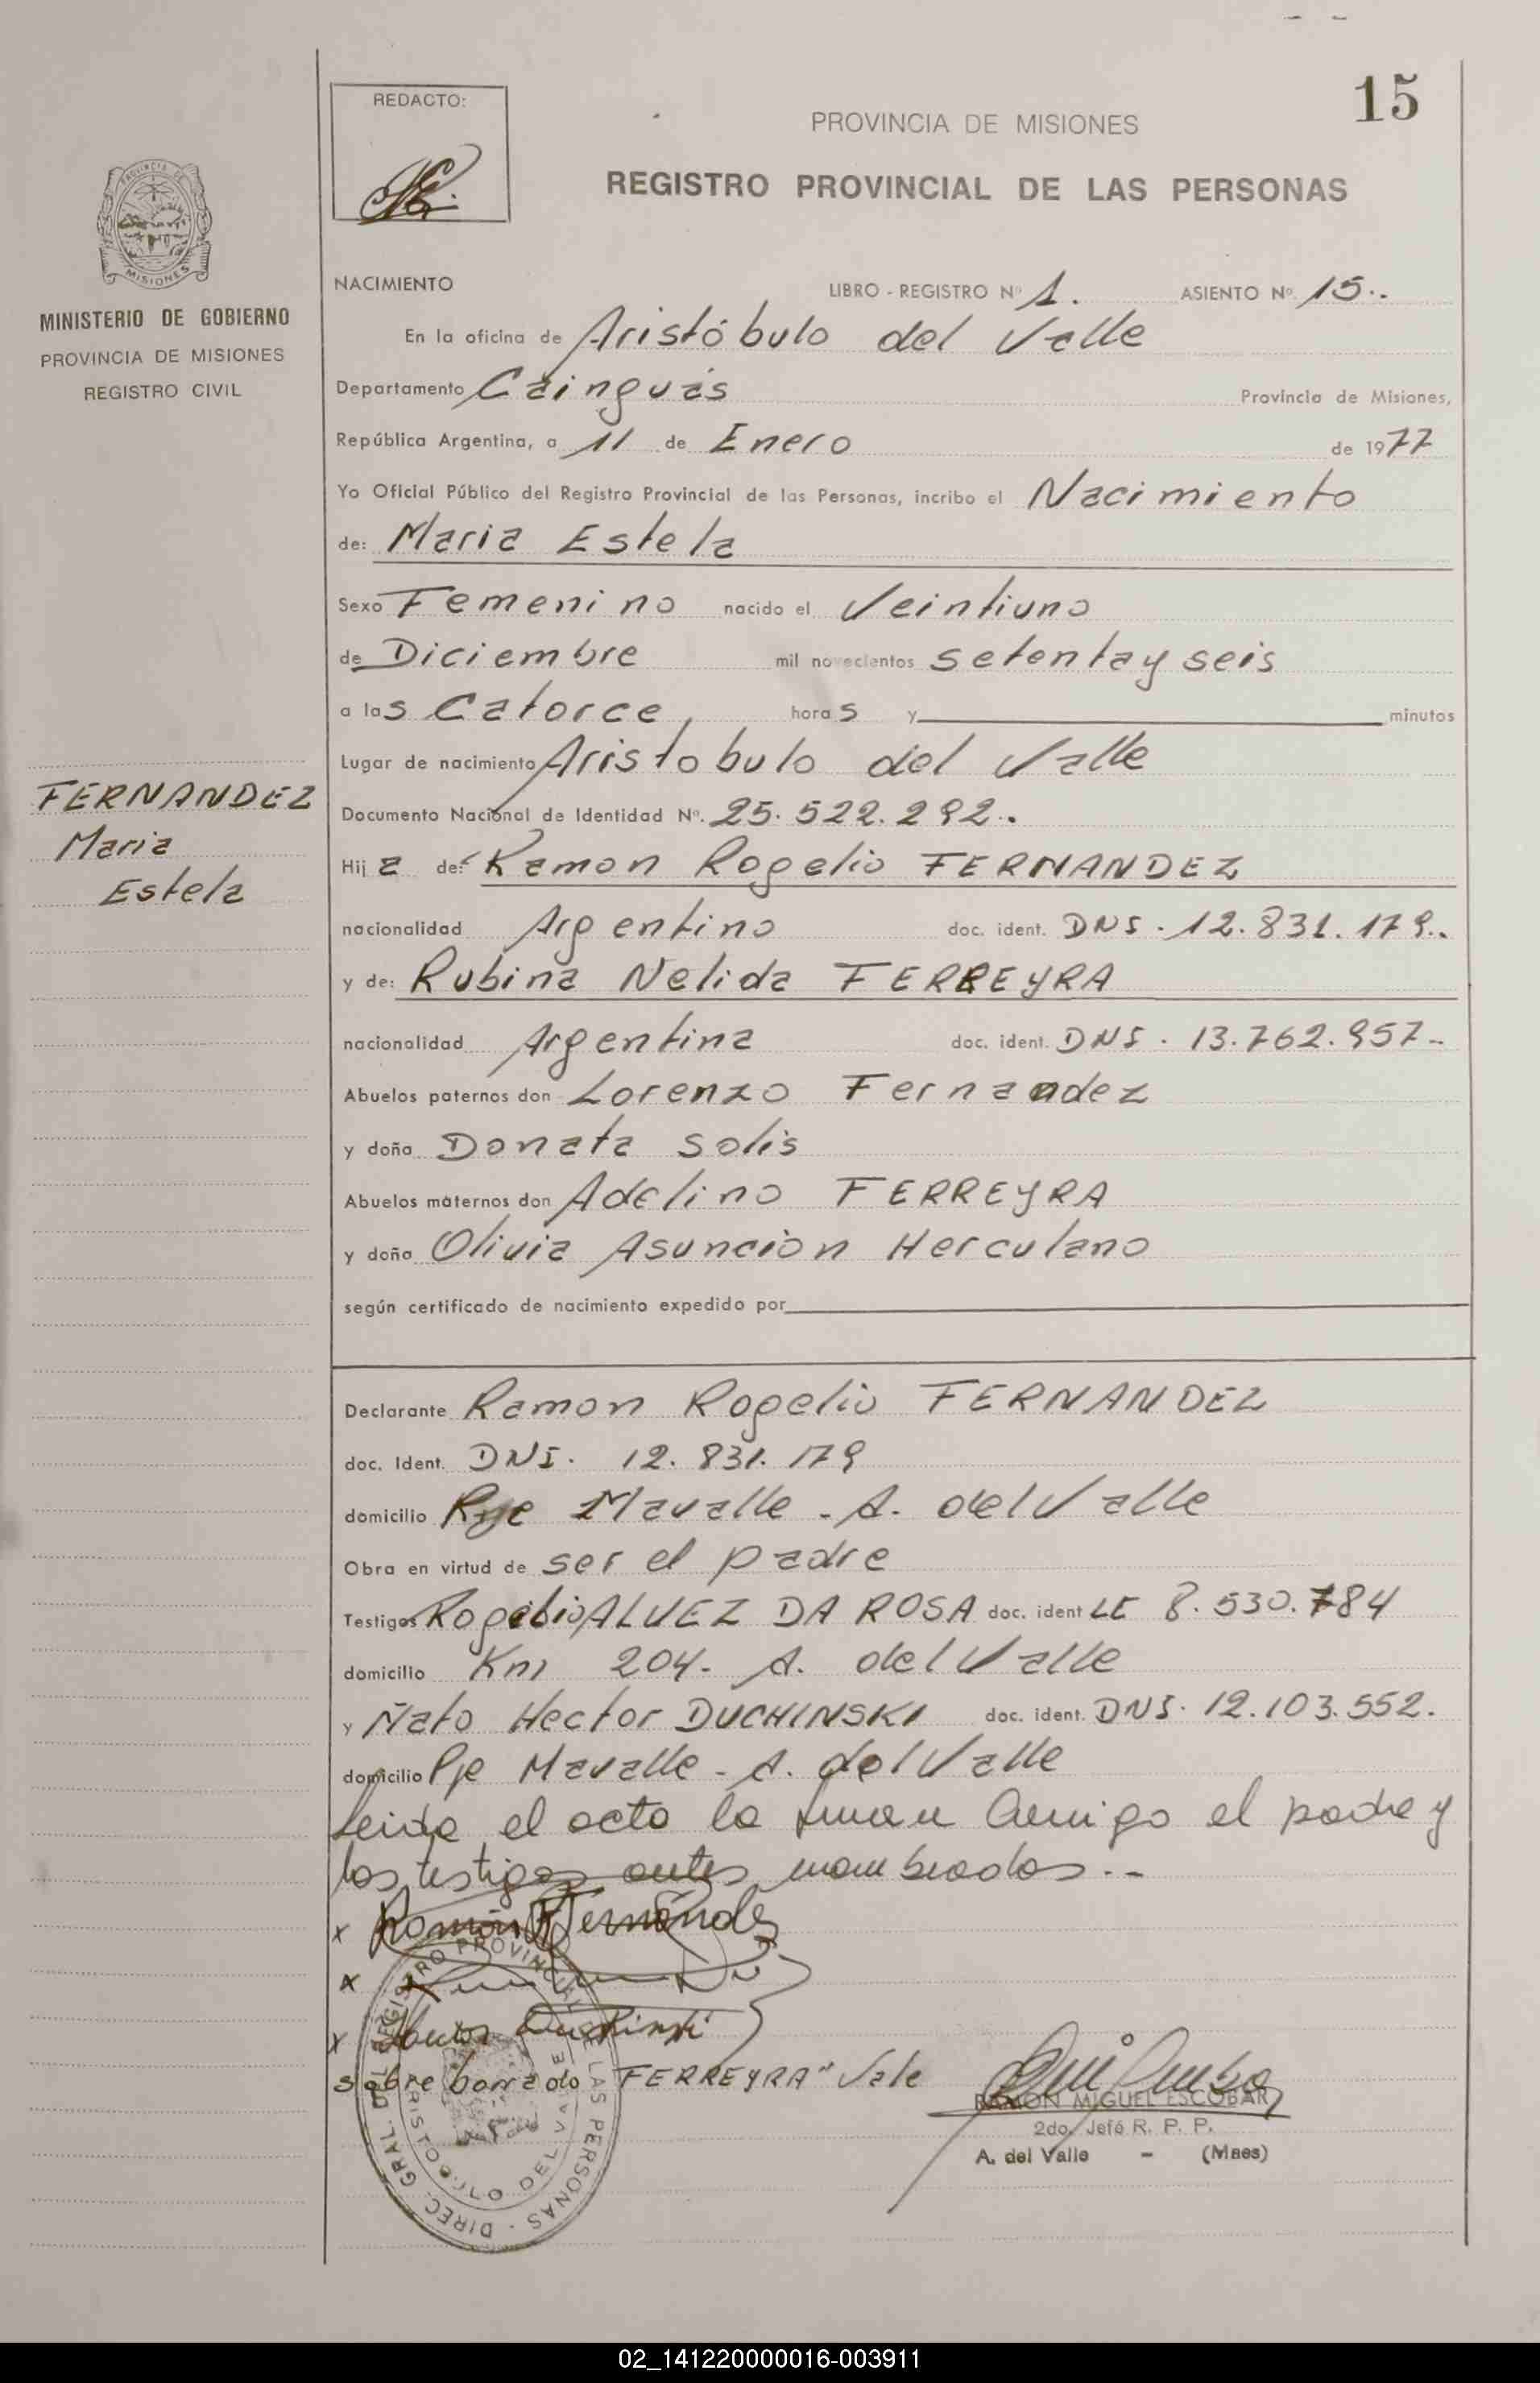 15
REDACTO:
PROVINCIA DE MISIONES
REGISTRO PROVINCIAL DE LAS PERSONAS
MISIONES
MINISTERIO DE GOBIERNO
PROVINCIA DE MISIONES
REGISTRO CIVIL
NACIMIENTO LIBRO - REGISTRO Nº 1. ASIENTO Nº. 15..
En la oficina de Aristóbulo del Valle
Departamento Cainguás Provincia de Misiones,
República Argentina, a 11 de Enero de 1977
Yo Oficial Público del Registro Provincial de las Personas, incribo el Nacimiento
de: Maria Estela
Sexo Femenino nacido el Veintiuno
de Diciembre mil novecientos setenta y seis
a las Catorce, horas y minutos
Lugar de nacimiento Aristobulo del Valle
FERNANDEZ
Maria
Estela
Documento Nacional de Identidad Nº. 25.522.292..
Hija de: Ramon Rogelio FERNANDEZ
nacionalidad Argentino doc. ident. DNI. 12.831.179..
y de: Rubina Nelida FERREYRA
nacionalidad Argentina doc. ident. DNI. 13.762.957-
Abuelos paternos don Lorenzo Fernandez
y doña Donata Solis
Abuelos maternos don Adelino FERREYRA
y doña Olivia Asuncion Herculano
según certificado de nacimiento expedido por
Declarante Ramon Rogelio FERNANDEZ
doc. Ident. DNI. 12.831.179
domicilio Pje Mavalle - A. del Valle
Obra en virtud de ser el padre
Testigos Rogelio ALVEZ DA ROSA doc. ident LE 8.530.784
domicilio Km 204- A. del Valle
y Ñato Hector DUCHINSKI doc. ident. DNI. 12.103.552.
domicilio Pje Mavalle - A. del Valle
Leida el acta la firman conmigo el padre y
los testigos antes nombrados.-
x Ramón Fernandez
x
x Duchinski
sobre borrado FERREYRA" Vale
REGISTRO PROVINCIAL DE LAS PERSONAS - DIREC. GRAL. DEL
ARISTOBULO DEL VALLE
RAMON MIGUEL ESCOBAR
2do. Jefe R. P. P.
A. del Valle - (Mnes)
02_141220000016-003911